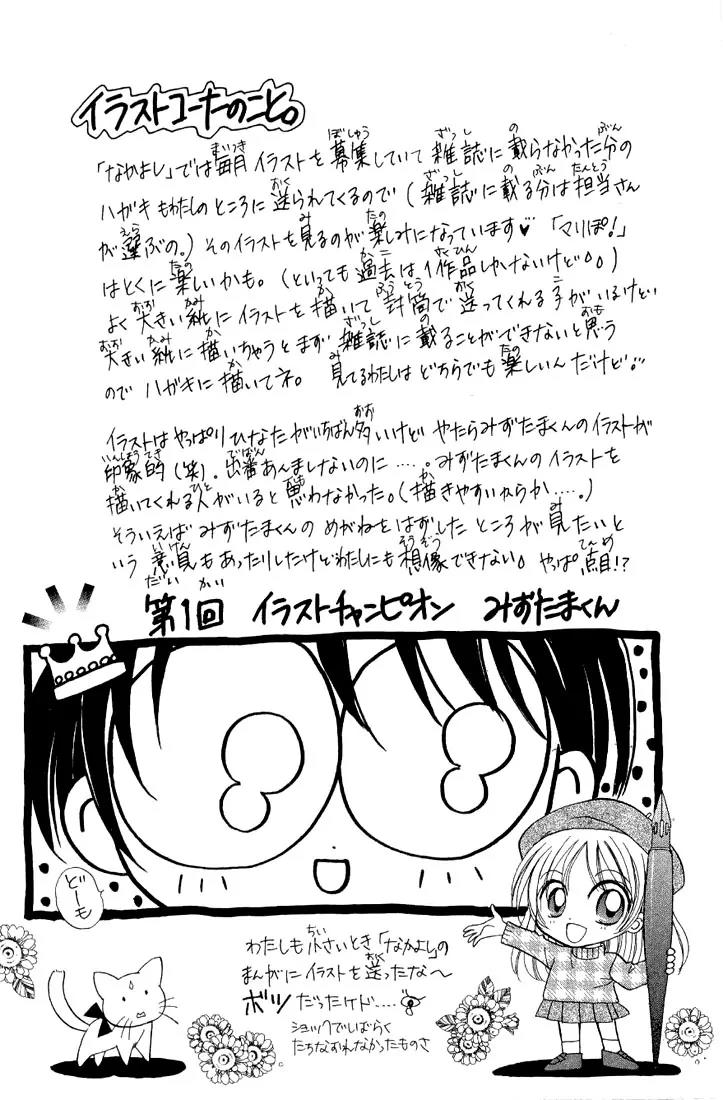 イラストコーナーのこと。
「なかよし」では毎月イラストを募集していて雑誌に載らなかった分の
ハガキもわたしのところに送られてくるので(雑誌に載る分は担当さん
が選ぶの。)そのイラストを見るのが楽しみになっています♥「マリぽ!」
はとくに楽しいかも。(といっても過去は1作品しかないけど。。)
よく大きい紙にイラストを描いて封筒で送ってくれる子がいるけど
大きい紙に描いちゃうとまず雑誌に載ることができないと思う
のでハガキに描いてネ。見てるわたしはどちらでも楽しいんだけど
イラストはやっぱりひなたがいちばん多いけどやたらみずたまくんのイラストが
印象的(笑)。出番あんましないのに……。みずたまくんのイラストを
描いてくれる人がいると思わなかった。(描きやすいからか……。)
そういえばみずたまくんのめがねをはずしたところが見たいと
いう意見もあったりしたけどわたしにも想像できない。やっぱ点目!?
第1回 イラストチャンピオン みずたまくん
どーも
わたしも小さいとき「なかよし」の
まんがにイラストを送ったな〜
ボツだったケド……
ショックでしばらく
たちなおれなかったものさ